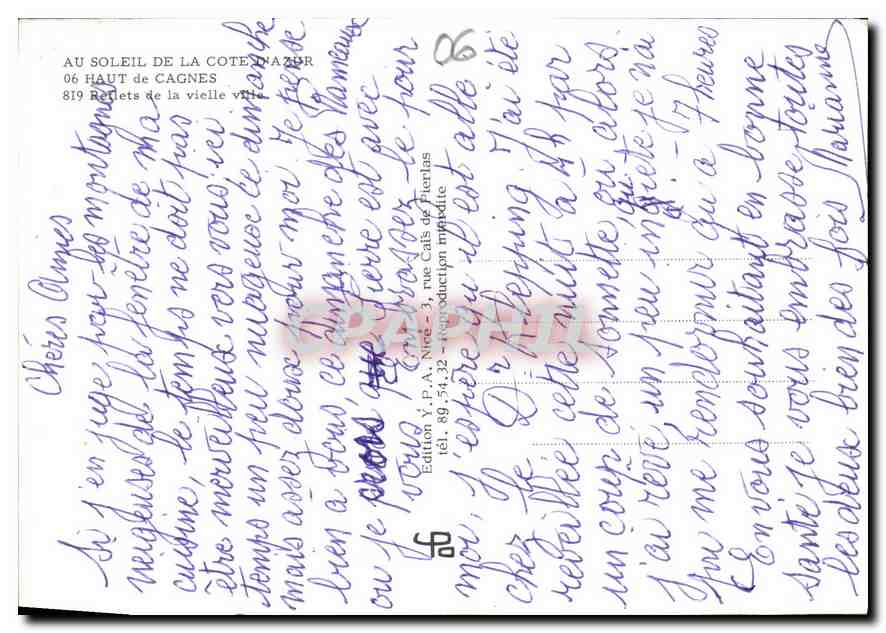 AU SOLEIL DE LA COTE D'AZUR
06 HAUT de CAGNES
819 Reflets de la vielle ville
06
Edition Y.P.A. Nice - 3, rue Caïs de Pierlas
tél. 89.54.32 - Reproduction interdite
CPAPHIL
Chères Amies
Si j'en juge par les montagnes
neigeuses de la fenêtre de ma
cuisine, le temps ne doit pas
être merveilleux vers vous, ici
temps un peu nuageux ce dimanche
mais assez doux pour moi Je pense
bien a vous, ce dimanche des Rameaux
ou je Pierre est avec
vous, embrassez le pour
moi, J'espère qu'il est allé
chez le Dr J'ai été
reveillée cette nuit à 4h par
un coup de sonnette ou alors
j'ai rêvé un peu inquiete je n'ai
pu me rendormir qu'a - 7 heures
En vous souhaitant en bonne
santé je vous embrasse toutes
les deux bien des fois Marianne